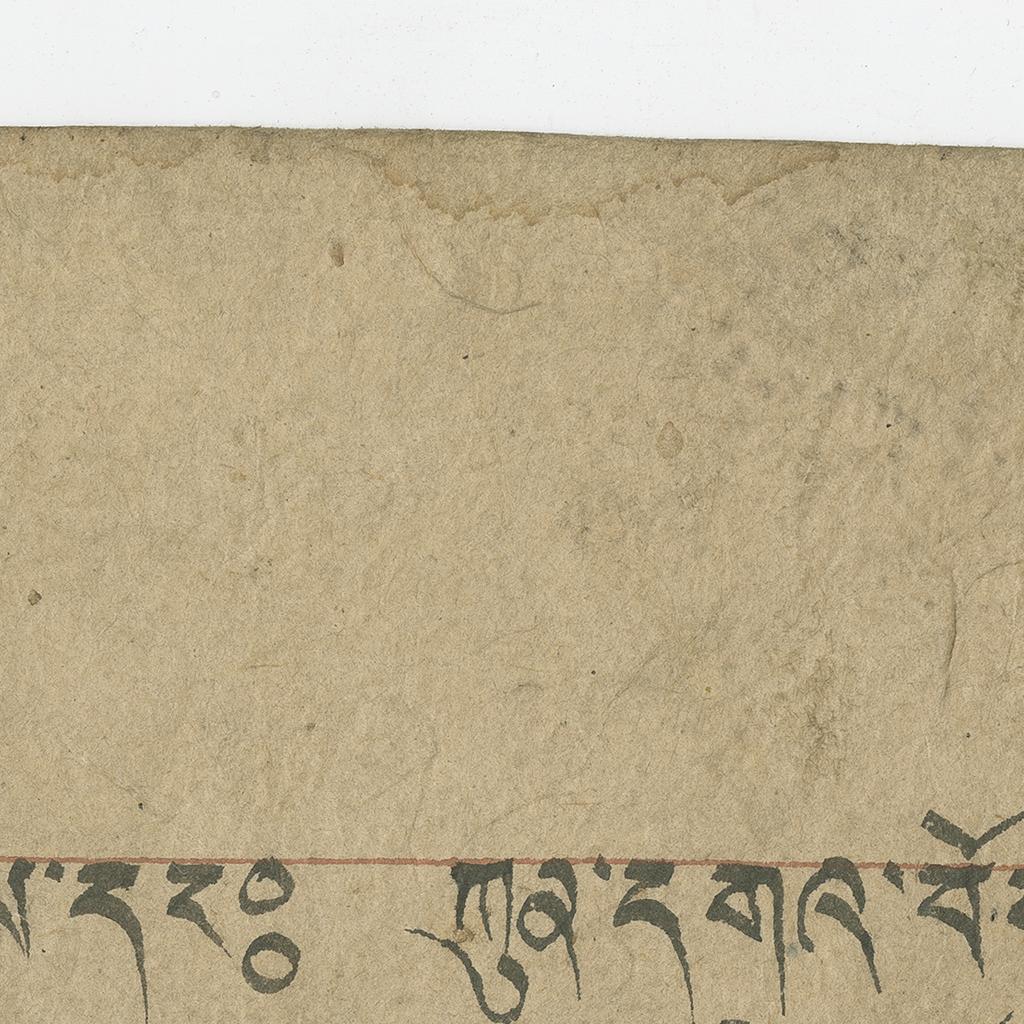 དང༔ ཀུན་དགའ་བོ